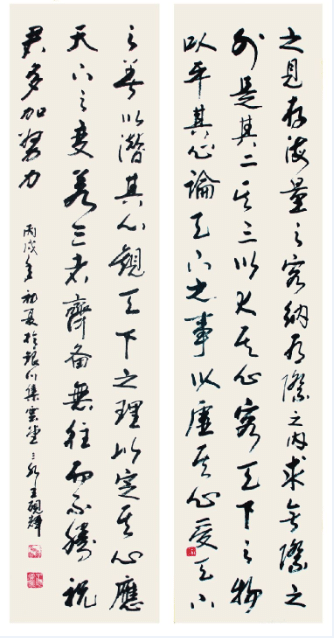 之見存海量之容納有際之內求無際之
外是其二其三以大其心容天下之物
以平其心論天下之事以虛其心受天下
之善以潛其心觀天下之理以定其心應
天下之變若三者齊備無往而不勝祝
君多加努力
丙戌年初夏於銀川集雲堂